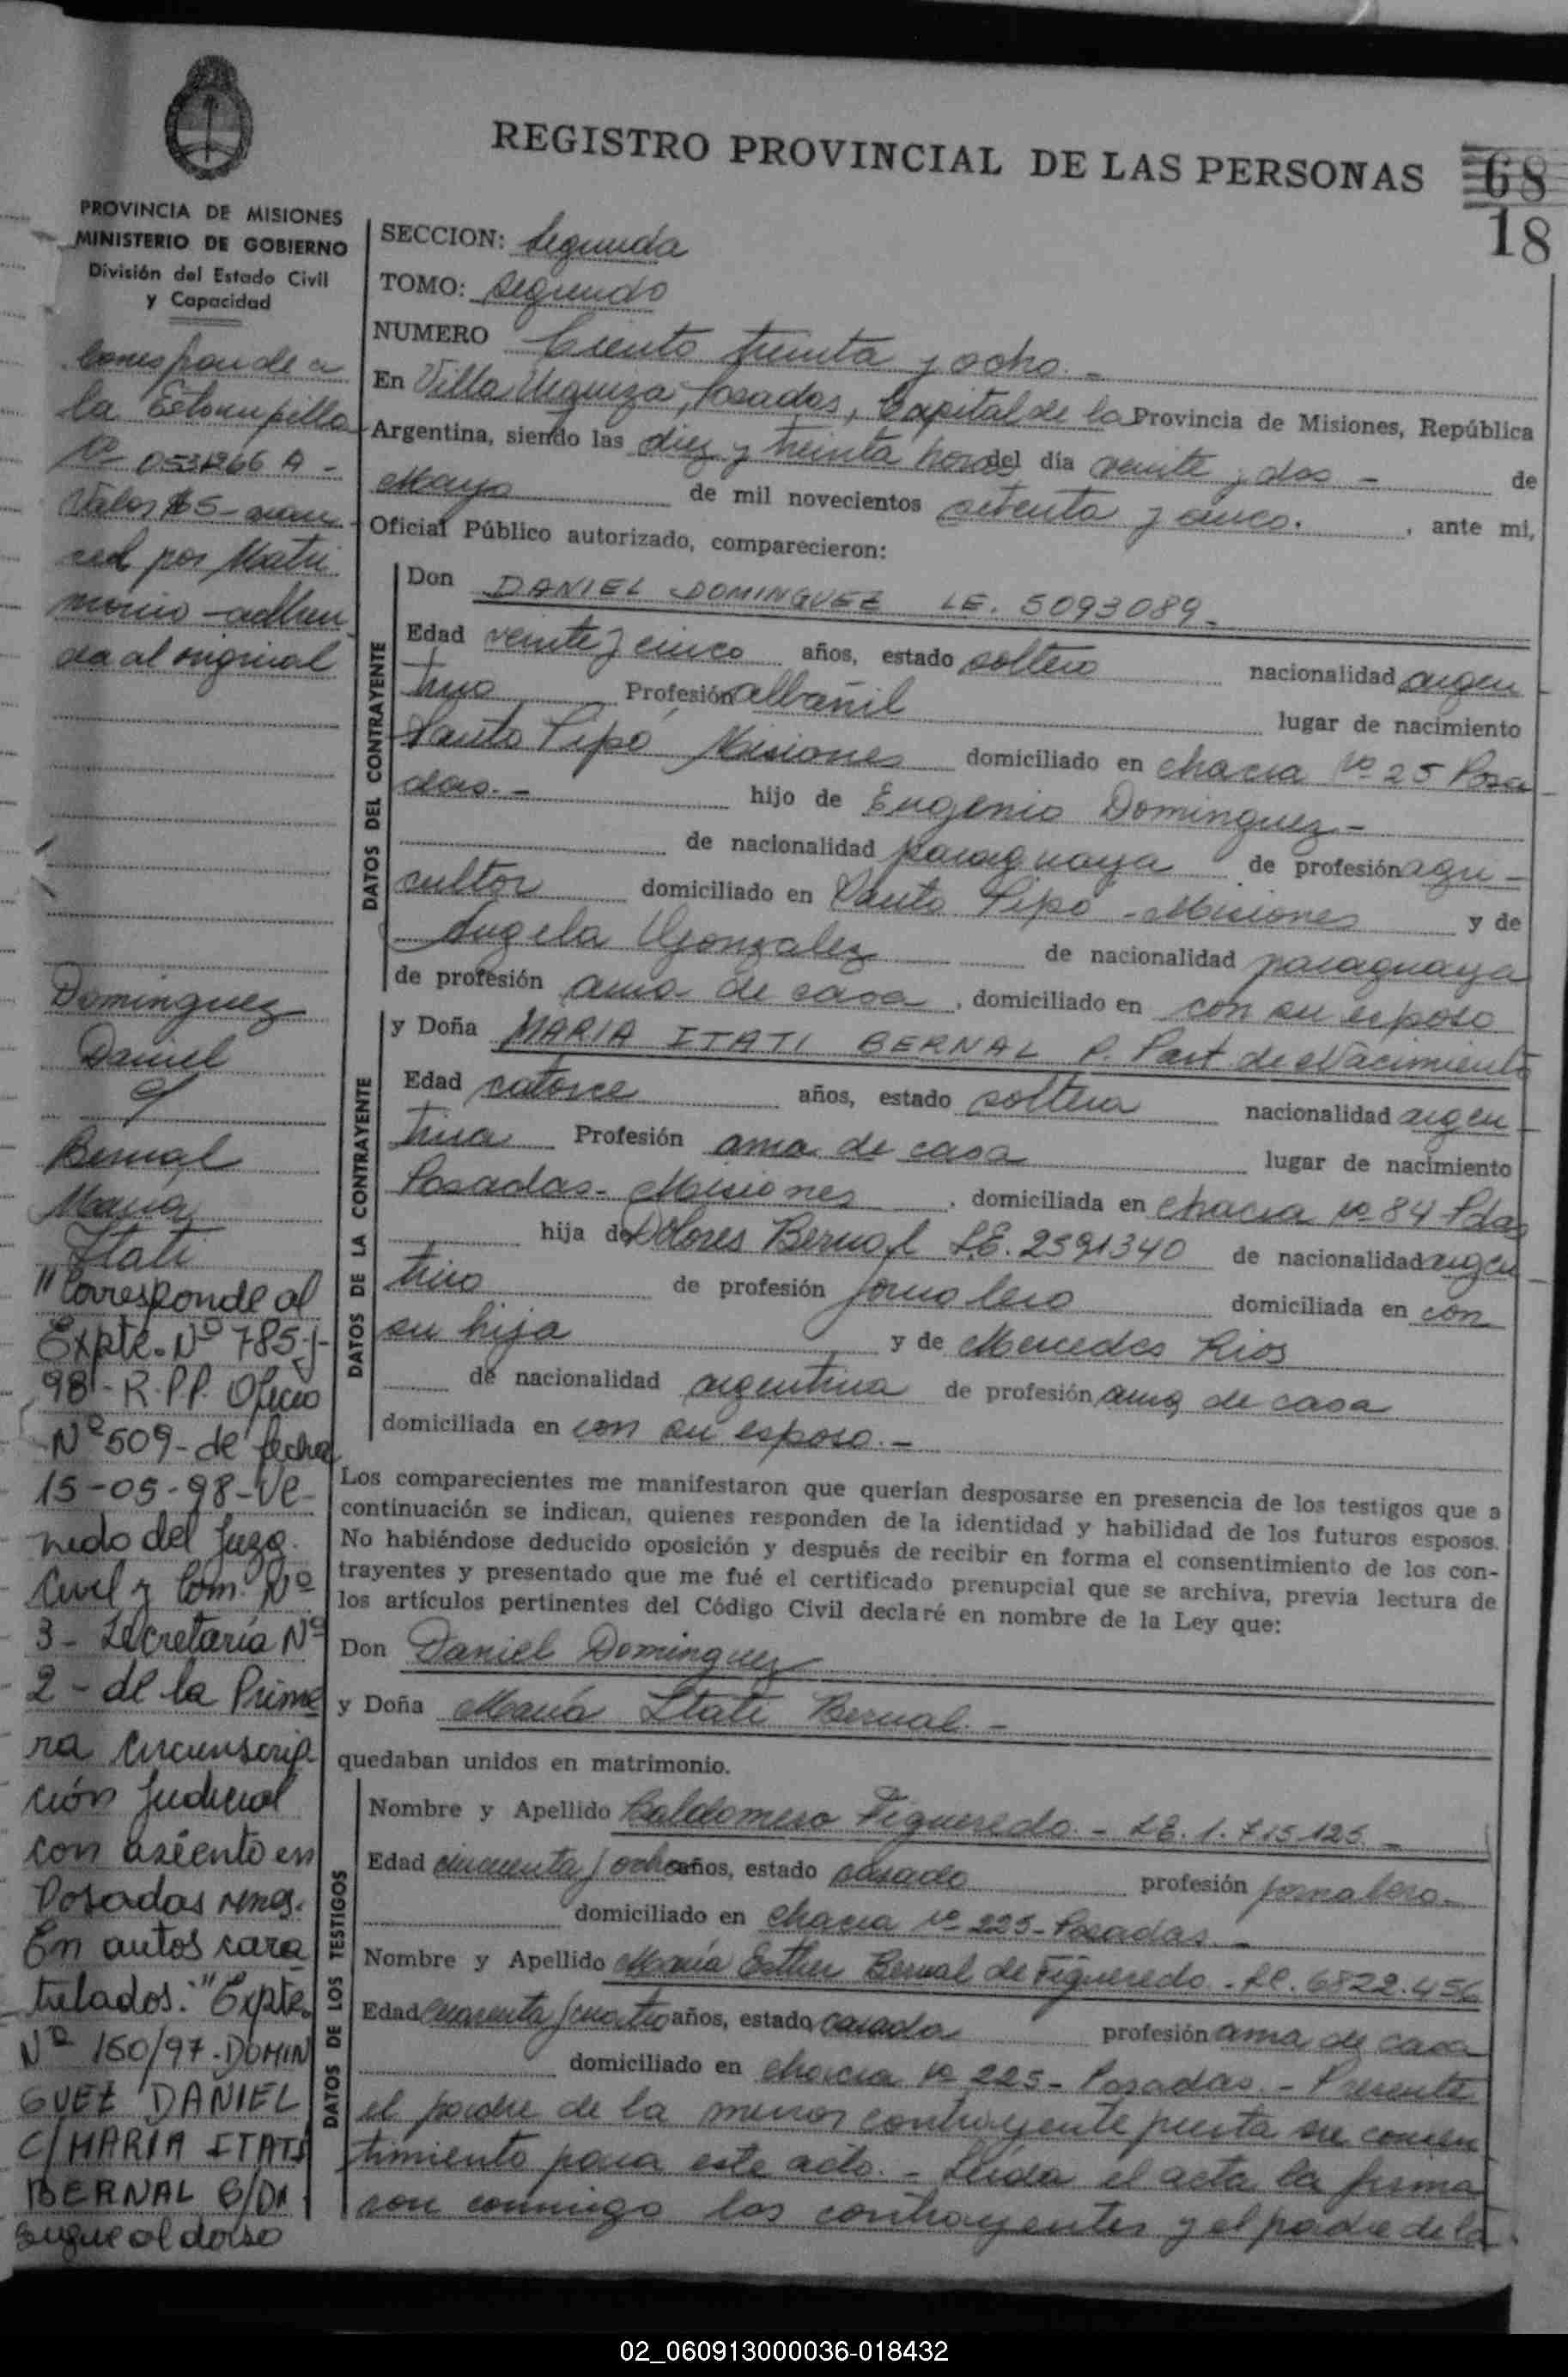 REGISTRO PROVINCIAL DE LAS PERSONAS
68
18
PROVINCIA DE MISIONES
MINISTERIO DE GOBIERNO
División del Estado Civil
y Capacidad
Corresponde a
la Estampilla
Nº 0531266 A -
Valor $5-
por Matri
monio - adheri
da al original
Dominguez
Daniel
y
Bernal
María
Itatí
"Corresponde al
Expte. Nº 785-J-
98-R.P.P. Oficio
Nº 509- de fecha
15-05-98-Ve-
nido del Juzg.
Civil y Com. Nº
3- Secretaría Nº
2- de la Prime
ra Circunscrip
ción Judicial
con asiento en
Posadas Mnes.
En autos cara
tulados: "Expte.
Nº 150/97-DOMIN
GUEZ DANIEL
C/MARIA ITATI
BERNAL S/Di
Sigue al dorso
SECCION: Segunda
TOMO: Segundo
NUMERO Ciento treinta y ocho.-
En Villa Urquiza, Posadas, Capital de la Provincia de Misiones, República
Argentina, siendo las diez y treinta horas del día veinte y dos - de
Mayo de mil novecientos setenta y cinco. , ante mi,
Oficial Público autorizado, comparecieron:
DATOS DEL CONTRAYENTE
Don DANIEL DOMINGUEZ LE. 5093089-
Edad veinte y cinco años, estado soltero nacionalidad argen
tino Profesión albañil lugar de nacimiento
Santo Pipó Misiones domiciliado en chacra Nº 25 Posa
das.- hijo de Eugenio Dominguez-
de nacionalidad paraguaya de profesión agri-
cultor domiciliado en Santo Pipó - Misiones y de
Angela Gonzalez de nacionalidad paraguaya
de profesión ama de casa , domiciliado en con su esposo
DATOS DE LA CONTRAYENTE
y Doña MARIA ITATI BERNAL P. Part. de Nacimiento
Edad catorce años, estado soltera nacionalidad argen
tina Profesión ama de casa lugar de nacimiento
Posadas- Misiones , domiciliada en chacra Nº 84 Pdas
hija de Dolores Bernal LE. 2591340 de nacionalidad argen
tino de profesión jornalero domiciliada en con
su hija y de Mercedes Rios
de nacionalidad argentina de profesión ama de casa
domiciliada en con su esposo.-
Los comparecientes me manifestaron que querían desposarse en presencia de los testigos que a
continuación se indican, quienes responden de la identidad y habilidad de los futuros esposos.
No habiéndose deducido oposición y después de recibir en forma el consentimiento de los con-
trayentes y presentado que me fué el certificado prenupcial que se archiva, previa lectura de
los artículos pertinentes del Código Civil declaré en nombre de la Ley que:
Don Daniel Dominguez
y Doña María Itatí Bernal.-
quedaban unidos en matrimonio.
DATOS DE LOS TESTIGOS
Nombre y Apellido Baldomero Figueredo - LE. 1.715.125.-
Edad cincuenta y ocho años, estado casado profesión jornalero-
domiciliado en chacra Nº 225- Posadas.-
Nombre y Apellido María Esther Bernal de Figueredo - LC. 6822.456
Edad cuarenta y cuatro años, estado casada profesión ama de casa
domiciliado en chacra Nº 225- Posadas.- Presente
el padre de la menor contrayente presta su consen
timiento para este acto.- Leída el acta la firma
ron conmigo los contrayentes y el padre de la
02_060913000036-018432